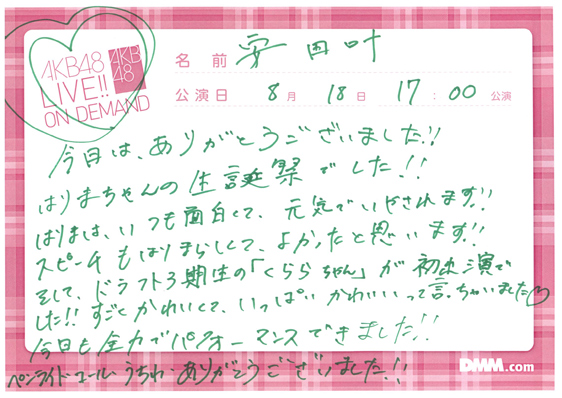 AKB48
LIVE!!
ON DEMAND
AKB
48
名前 安田叶
公演日 8月 18日 17:00 公演
今日は、ありがとうございました!!
はりまちゃんの生誕祭でした!!
はりまは、いつも面白くて、元気でいやされます!!
スピーチもはりまらしくて、よかったと思います!!
そして、ドラフト3期生の「くららちゃん」が初出演で
した!! すごくかわいくて、いっぱいかわいいって言っちゃいました♡
今日も全力でパフォーマンスできました!!
ペンライト・コール、うちわ、ありがとうございました!!
DMM.com